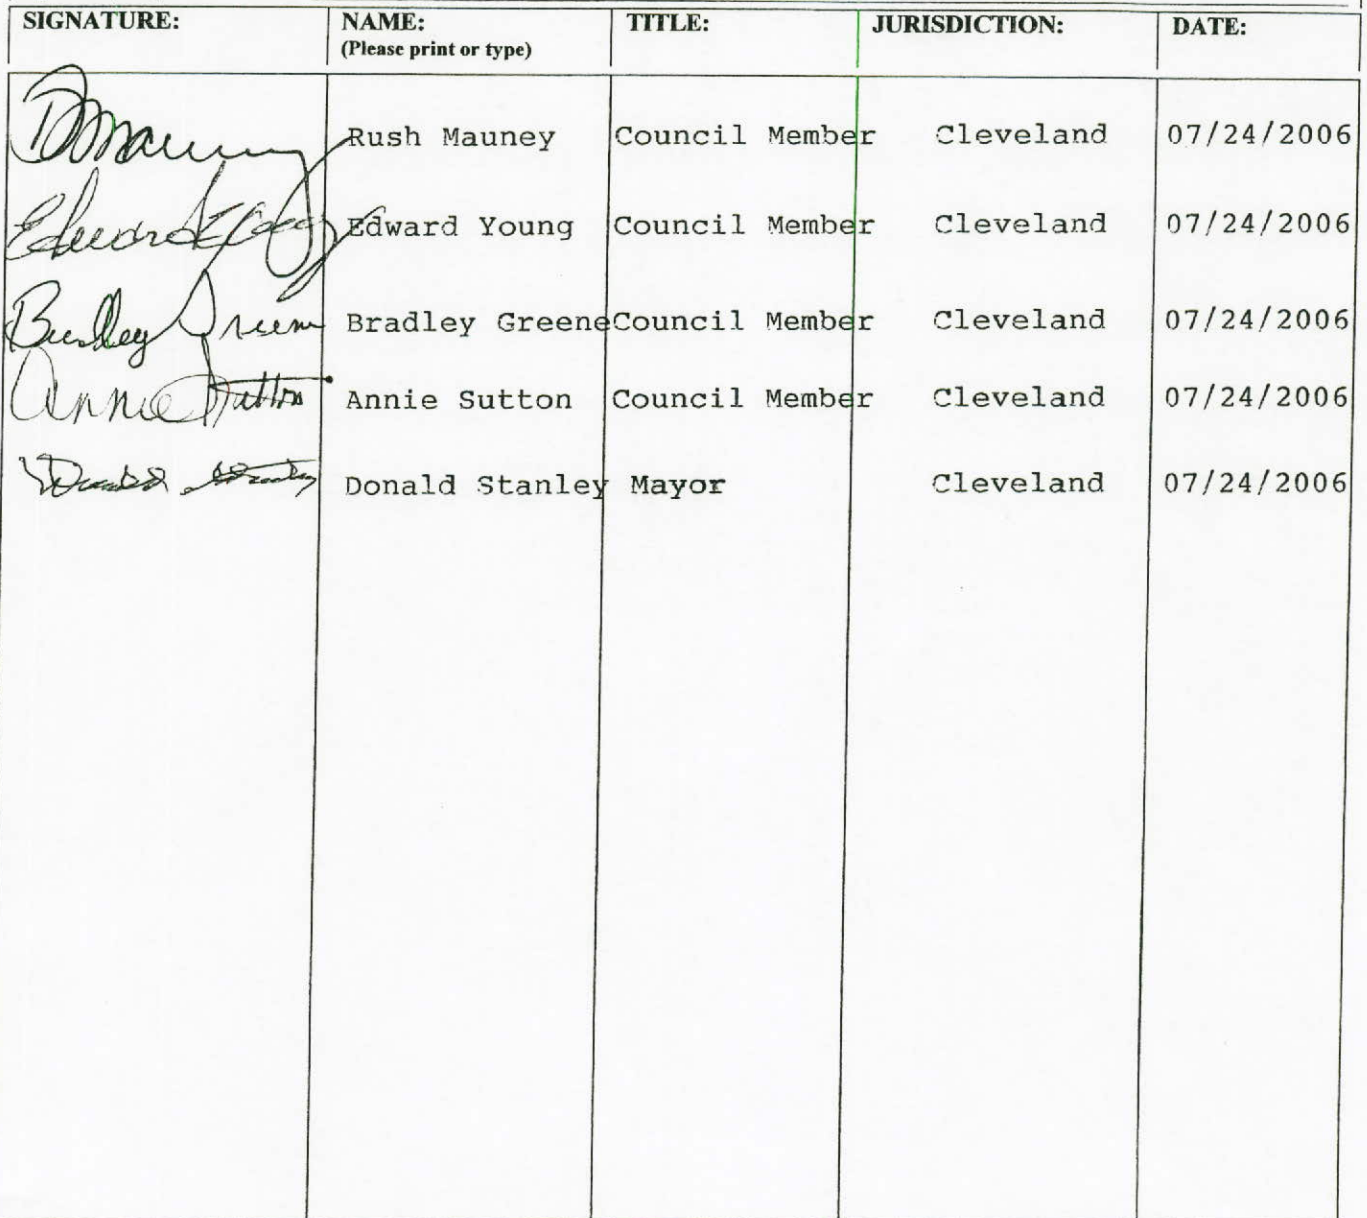 SIGNATURE: NAME: TITLE: JURISDICTION: DATE:
(Please print or type)
Mauney Rush Mauney Council Member Cleveland 07/24/2006
Edward Young Edward Young Council Member Cleveland 07/24/2006
Bradley Greene Bradley Greene Council Member Cleveland 07/24/2006
Annie Sutton Annie Sutton Council Member Cleveland 07/24/2006
Donald Stanley Donald Stanley Mayor Cleveland 07/24/2006